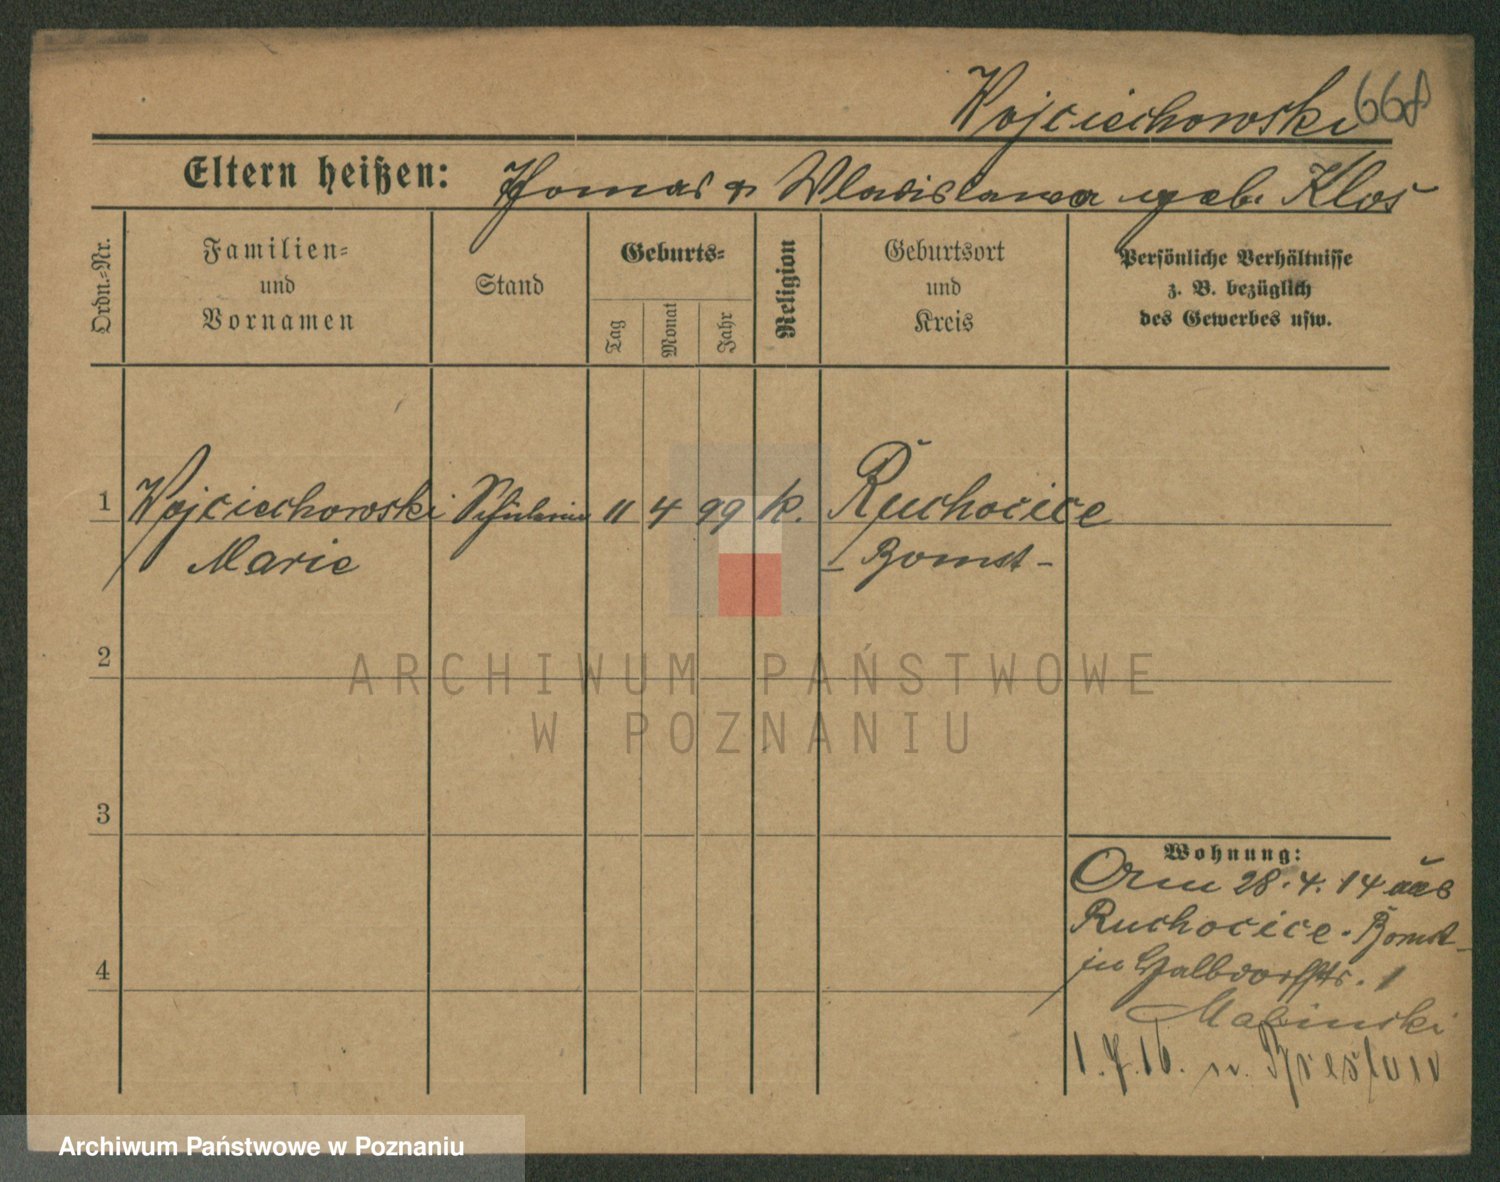 Wojciechowski 668
Eltern heißen: Thomas & Wladislawa geb. Klos
Ordn.-Nr.
Familien-
und
Vornamen
Stand
Geburts-
Tag
Monat
Jahr
Religion
Geburtsort
und
Kreis
Persönliche Verhältnisse
z. B. bezüglich
des Gewerbes usw.
1 Wojciechowski Schülerin 11 4 99 k. Ruchocice
Marie - Bomst -
2
3
4
Wohnung:
Am 28.4.14 aus
Ruchocice - Bomst -
in Halbdorffstr. 1
Malinski
1.7.16. n. Breslau
ARCHIWUM PAŃSTWOWE
W POZNANIU
Archiwum Państwowe w Poznaniu